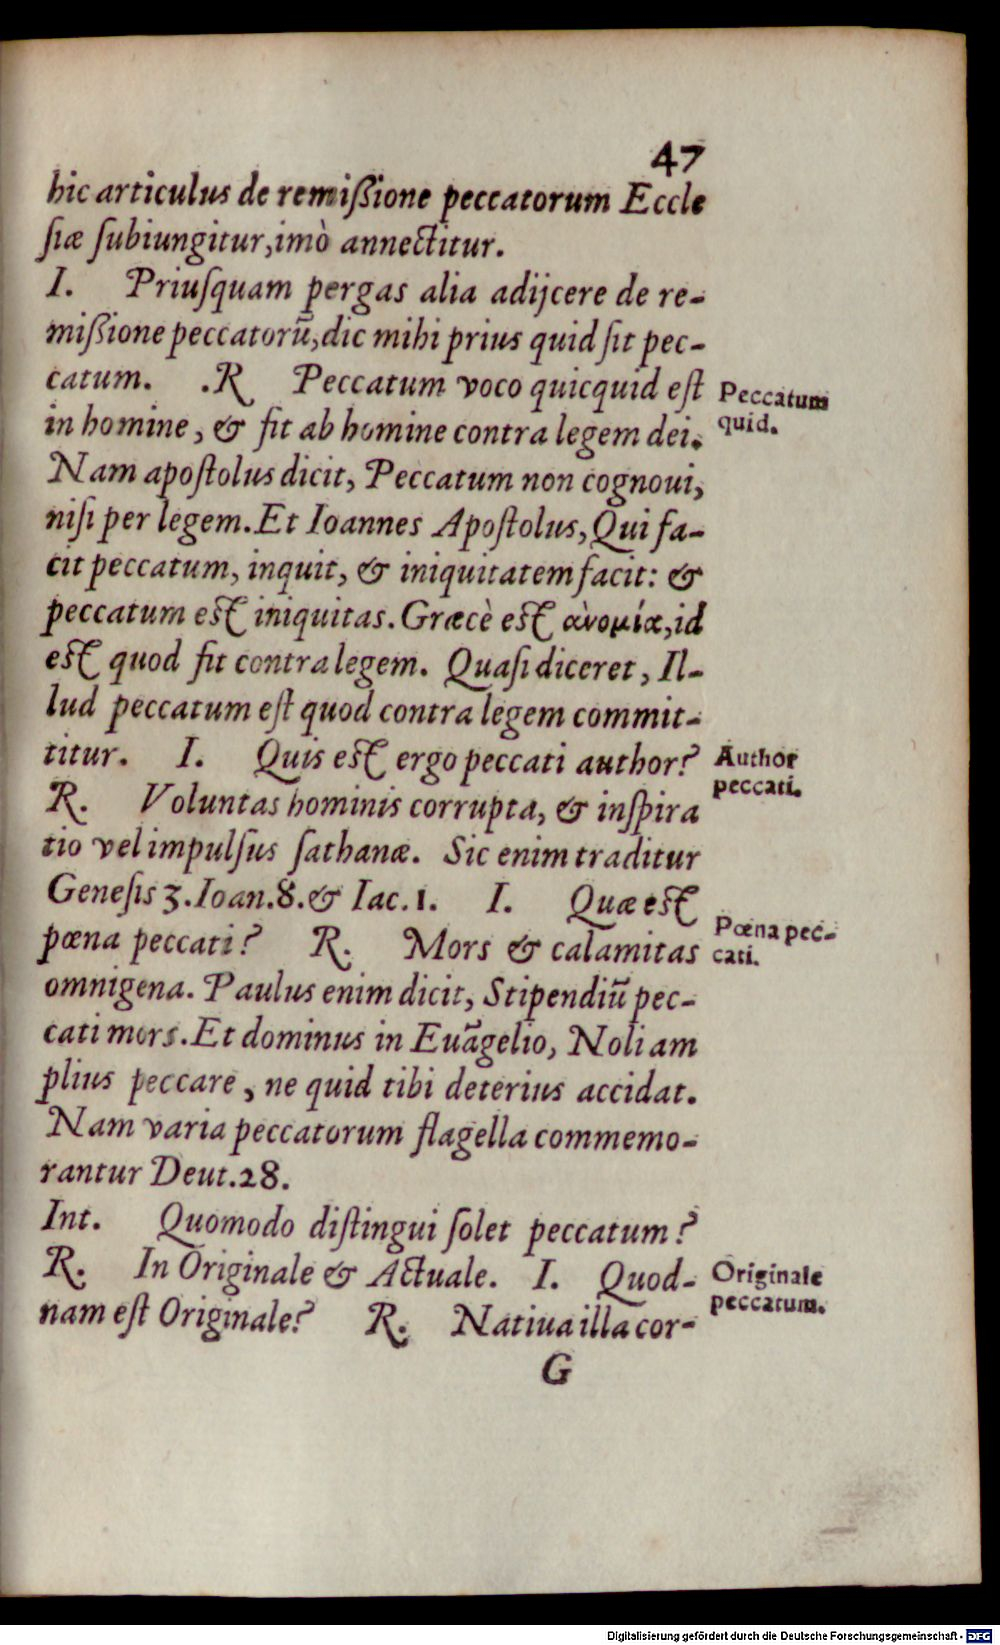 47
hic articulus de remißione peccatorum Eccle
ſiæ ſubiungitur,imò annectitur.
I. Priuſquam pergas alia adijcere de re-
mißione peccatorū,dic mihi prius quid ſit pec-
catum. .R Peccatum voco quicquid eſt
in homine, & fit ab homine contra legem dei.
Peccatum
quid.
Nam apoſtolus dicit, Peccatum non cognoui,
niſi per legem. Et Ioannes Apoſtolus, Qui fa-
cit peccatum, inquit, & iniquitatem facit: &
peccatum eſt iniquitas. Græcè eſt ἀνομία, id
eſt quod fit contra legem. Quaſi diceret, Il-
lud peccatum eſt quod contra legem commit-
titur. I. Quis eſt ergo peccati author?
Author
peccati.
R. Voluntas hominis corrupta, & inſpira
tio vel impulſus ſathanæ. Sic enim traditur
Geneſis 3. Ioan.8. & Iac.1. I. Quæ eſt
pœna peccati? R. Mors & calamitas
Pœna pec-
cati.
omnigena. Paulus enim dicit, Stipendiū pec-
cati mors. Et dominus in Euāgelio, Noli am
plius peccare, ne quid tibi deterius accidat.
Nam varia peccatorum flagella commemo-
rantur Deut.28.
Int. Quomodo diſtingui ſolet peccatum?
R. In Originale & Actuale. I. Quod-
nam eſt Originale? R. Natiua illa cor-
Originale
peccatum.
G
Digitalisierung gefördert durch die Deutsche Forschungsgemeinschaft - DFG